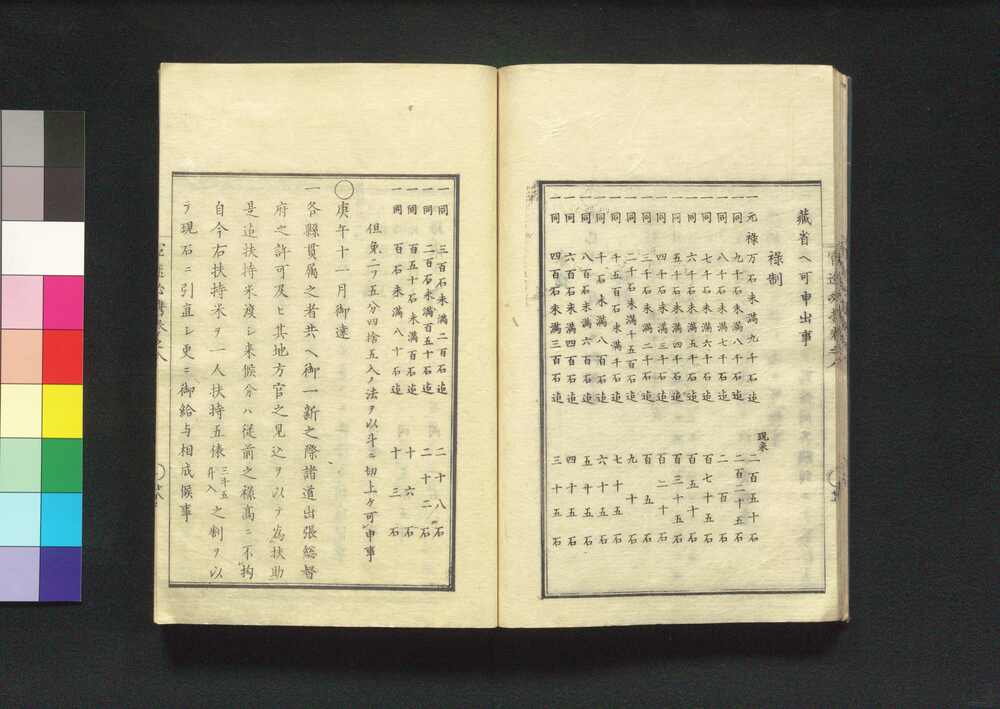 蔵省ヘ可申出事
禄制
一元禄 万石未満九千石迄 現米 二百五十石
一同 九千石未満八千石迄 二百二十五石
一同 八千石未満七千石迄 二百石
一同 七千石未満六千石迄 百七十五石
一同 六千石未満五千石迄 百五十石
一同 五千石未満四千石迄 百三十五石
一同 四千石未満三千石迄 百二十石
一同 三千石未満二千石迄 百五石
一同 二千石未満千五百石迄 九十石
一同 千五百石未満千石迄 七十五石
一同 千石未満八百石迄 六十五石
一同 八百石未満六百石迄 五十五石
一同 六百石未満四百石迄 四十五石
一同 四百石未満三百石迄 三十五石
一同 三百石未満二百石迄 二十八石
一同 二百石未満百五十石迄 二十二石
一同 百五十石未満百石迄 十六石
一同 百石未満八十石迄 十三石
但弟二ヲ五分四捨五入ノ法ヲ以斗ニ切上ケ可申事
〇庚午十一月御達
一各縣貫属之者共ヘ御一新之際諸道出張総督
府之許可及ヒ其地方官之見込ヲ以テ為扶助
是迄扶持米渡シ来候分ハ従前之禄高ニ不拘
自今右扶持米ヲ一人扶持五俵 三斗五升入 之割ヲ以
テ現石ニ引直シ更ニ御給与相成候事